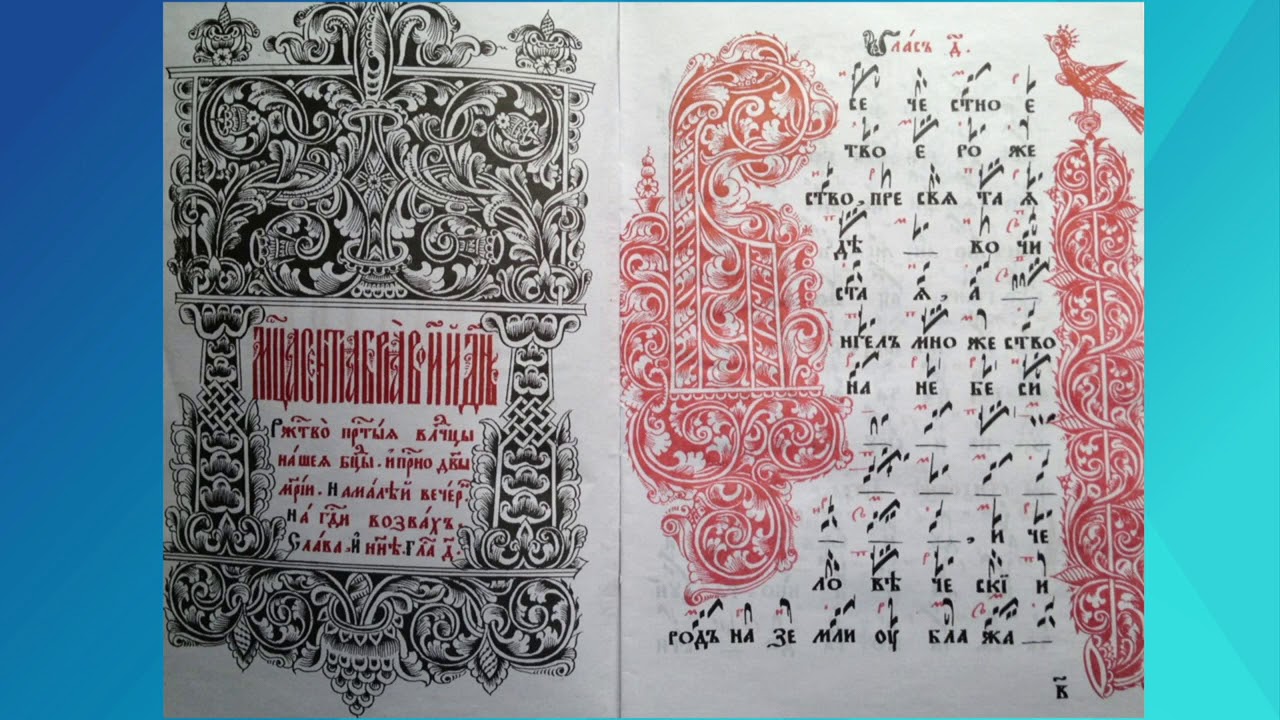 Мц҃а септевріа въ и҃ дн҃ь
Ржтво̀ прⷭ҇тыѧ влⷣцы
нашеѧ бцⷣы. и҆ прⷭ҇но дв҃ы
мр҃іи. На малѣй вечер
на гдⷭ҇и возва́хъ,
Слава, и҆ нн҃ѣ. гла д҃.
Гла́съ д҃.
се че стно е
тво е ро же
ство, пре свѧ та ѧ
дѣ во чи
ста ѧ, а
нгелъ мно же ство
на не бе си
, и че
ло вѣ че скїи
родъ на зе мли оу бла жа
в҃